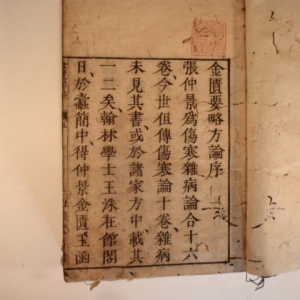 金匱要略方論序
張仲景爲傷寒雜病論合十六
卷今世但傳傷寒論十卷雜病
未見其書或於諸家方中載其
一二矣翰林學士王洙在館閣
日於蠹簡中得仲景金匱玉函